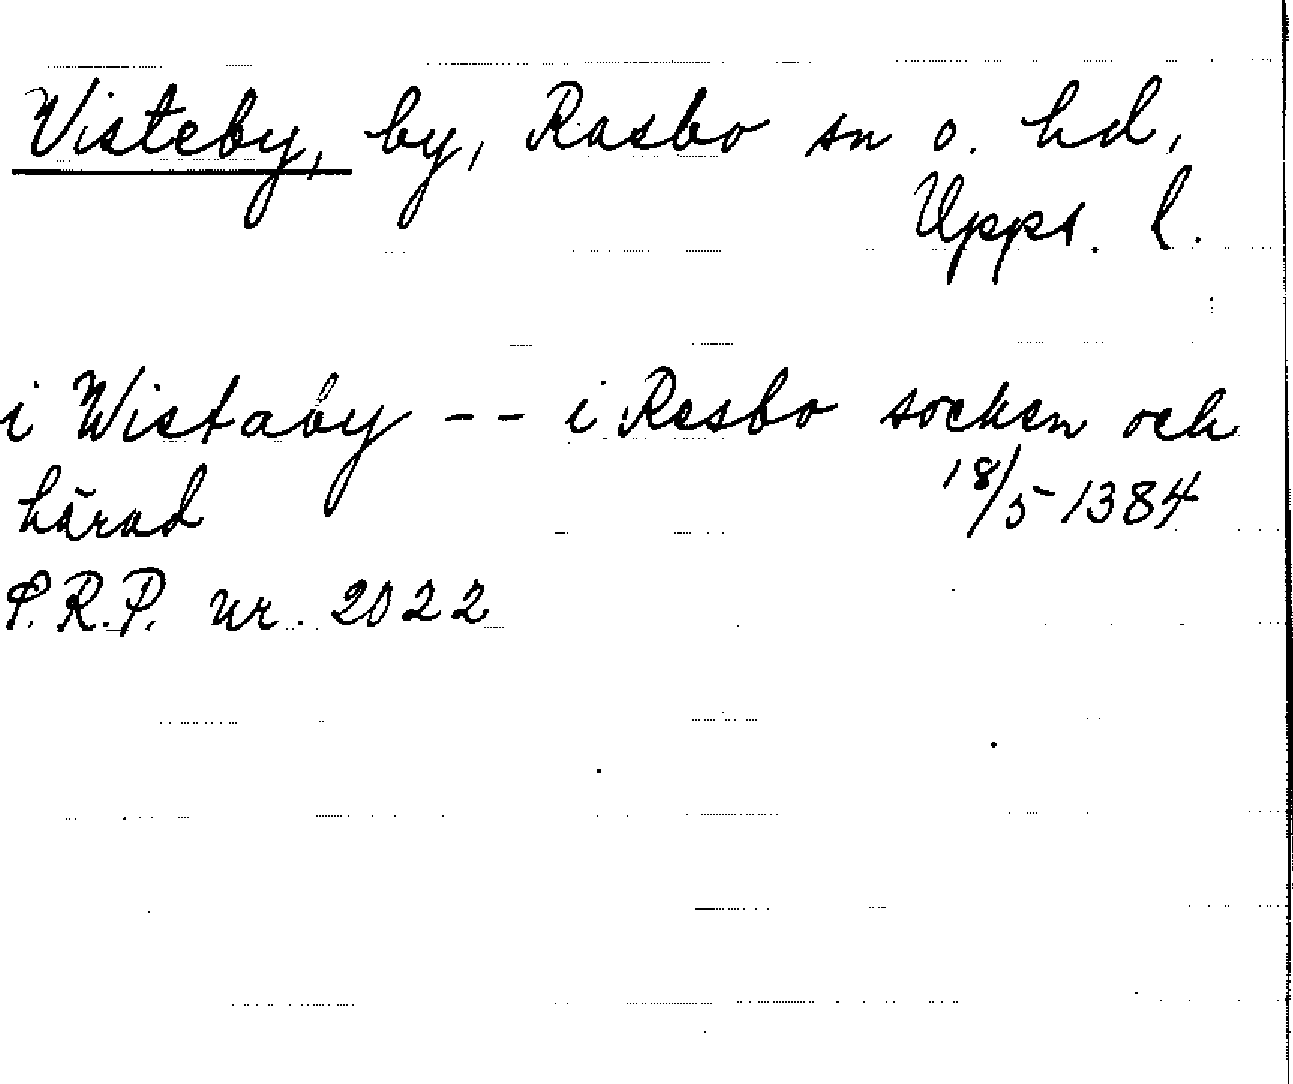 Visteby, by, Rasbo sn o. hd,
Upps. l.
i Wistaby -- i Resbo socken och
härad 18/5-1384
P.R.P. nr. 2022